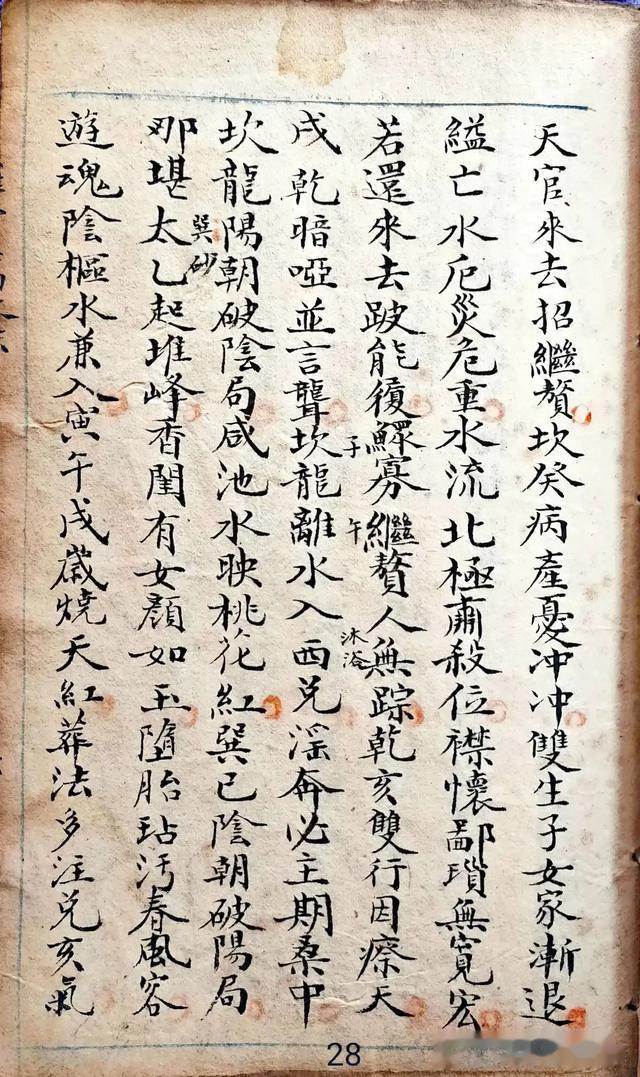 天官來去招繼贅坎癸病產憂冲冲雙生子女家漸退
縊亡水厄災危重水流北極肅殺位襟懷鄙瑣無寬宏
若還來去跛能履鰥寡繼贅人無踪乾亥雙行因瘵天
子
午
沐浴
戌乾暗啞並言聾坎龍離水入西兌淫奔必主期桑中
坎龍陽朝破陰局咸池水映桃花紅巽巳陰朝破陽局
巽砂
那堪太乙起堆峰香閨有女顏如玉墮胎玷汚春風容
遊魂陰樞水兼入寅午戌歲燒天紅葬法多注兌亥氣
28